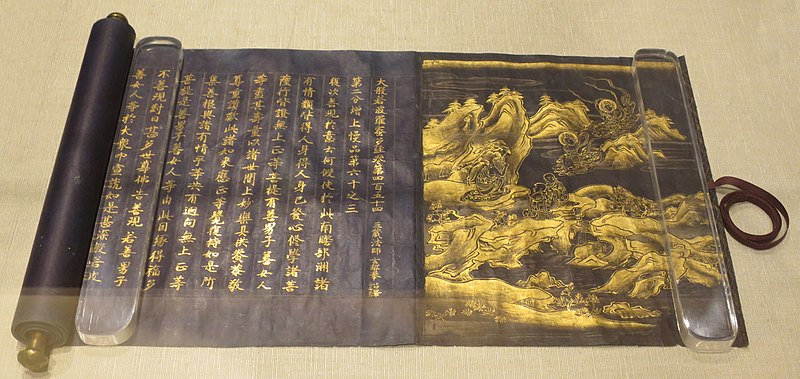 大般若波羅蜜多經卷第四百五十四 三藏法師玄奘奉 詔譯
第二分增上慢品第六十之三
復次善現於意云何假使於此南贍部洲諸
有情類皆得人身得人身已發心修學諸菩
薩行皆證無上正等菩提有善男子善女人
等盡其壽量以諸世間上妙樂具供養恭敬
尊重讚歎此諸如來應正等覺復持如是所
集善根與諸有情平等共有迴向無上正等
菩提是善男子善女人等由此因緣得福多
不善現對曰甚多世尊佛言善現若善男子
善女人等於大衆中宣說如是甚深般若波